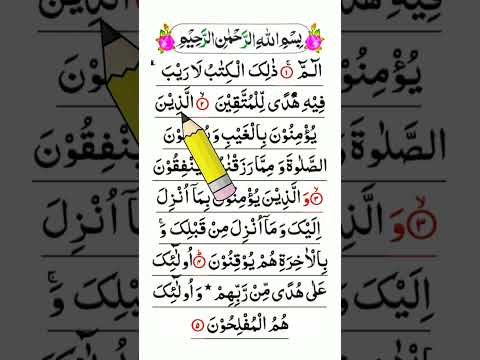 بِسْمِ اللهِ الرَّحْمٰنِ الرَّحِيْمِ
الٓمّٓ ۚ ١ ذٰلِكَ الْكِتٰبُ لَا رَيْبَ ۛ
فِيْهِ هُدًى لِّلْمُتَّقِيْنَ ٢ الَّذِيْنَ
يُؤْمِنُوْنَ بِالْغَيْبِ وَ
الصَّلٰوةَ وَ مِمَّا يُنْفِقُوْنَ
٣ وَ الَّذِيْنَ يُؤْمِنُوْنَ بِمَا اُنْزِلَ
اِلَيْكَ وَ مَاۤ اُنْزِلَ مِنْ قَبْلِكَ وَ ۚ
بِالْاٰخِرَةِ هُمْ يُوْقِنُوْنَ ٤ اُولٰٓئِكَ
عَلٰى هُدًى مِّنْ رَّبِّهِمْ * وَ اُولٰٓئِكَ
هُمُ الْمُفْلِحُوْنَ ٥